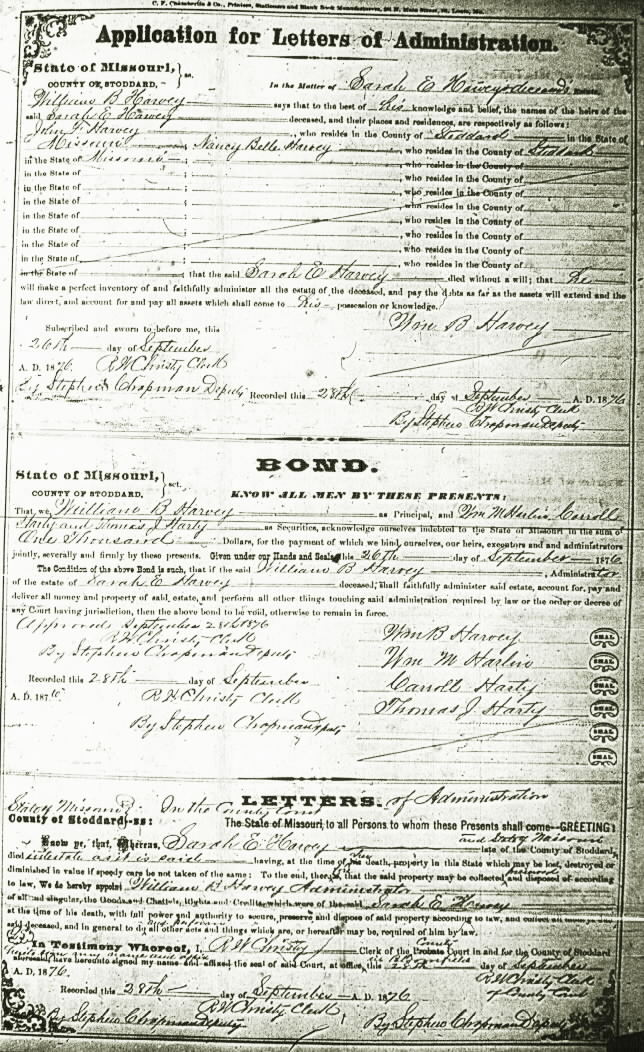 C. F. Chamberlin & Co., Printers, Stationers and Blank Book Manufacturers, St. Louis, Mo.
Application for Letters of Administration.
State of Missouri, } ss.
COUNTY OF STODDARD,
In the Matter of Sarah E Harvey deceased
William B Harvey says that to the best of his knowledge and belief, the names of the heirs of the
said Sarah E Harvey deceased, and their places and residences, are respectively as follows:
John F Harvey, who resides in the County of Stoddard in the State of
Missouri Nancy Belle Harvey, who resides in the County of Stoddard
in the State of Missouri ; , who resides in the County of
in the State of ; , who resides in the County of
in the State of ; , who resides in the County of
in the State of ; , who resides in the County of
in the State of ; , who resides in the County of
in the State of ; , who resides in the County of
in the State of ; , who resides in the County of
in the State of ; , who resides in the County of
in the State of ; that the said Sarah E Harvey died without a will; that he
will make a perfect inventory of and faithfully administer all the estate of the deceased, and pay the debts as far as the assets will extend and the
law direct, and account for and pay all assets which shall come to his possession or knowledge.
Wm B Harvey
Subscribed and sworn to before me, this
26th day of September
A. D. 1876. R H Christy Clerk
By Stephen Chapman Deputy Recorded this 28th day of September A. D. 1876
R H Christy Clerk
By Stephen Chapman Deputy
BOND.
State of Missouri, } sct.
COUNTY OF STODDARD,
KNOW ALL MEN BY THESE PRESENTS:
That we, William B Harvey as Principal, and Wm M Harlin Carroll
Harty and Thomas J Harty as Securities, acknowledge ourselves indebted to the State of Missouri in the sum of
One Thousand Dollars, for the payment of which we bind ourselves, our heirs, executors and administrators
jointly, severally and firmly by these presents. Given under our Hands and Seals, this 26th day of September 1876.
The Condition of the above Bond is such, that if the said William B Harvey, Administrator
of the estate of Sarah E Harvey deceased, shall faithfully administer said estate, account for, pay and
deliver all money and property of said estate, and perform all other things touching said administration required by law or the order or decree of
any Court having jurisdiction, then the above bond to be void, otherwise to remain in force.
Approved September 28th 1876
R H Christy Clerk
By Stephen Chapman Deputy
Wm B Harvey SEAL
Wm M Harlin SEAL
Carroll Harty SEAL
Thomas J Harty SEAL
SEAL
SEAL
Recorded this 28th day of September
A. D. 1876 R H Christy Clerk
By Stephen Chapman Deputy
LETTERS of Administration
State of Missouri In the County Court
County of Stoddard, ss: The State of Missouri, to all Persons to whom these Presents shall come—GREETING:
Know ye, that, Whereas, Sarah E Harvey late of the County of Stoddard, and State of Missouri
died intestate as it is said having, at the time of her death, property in this State which may be lost, destroyed or
diminished in value if speedy care be not taken of the same: To the end, therefore, that the said property may be collected preserved and disposed of according
to law, We do hereby appoint William B Harvey Administrator
of all and singular, the Goods and Chattels, Rights and Credits, which were of the said Sarah E Harvey
at the time of his death, with full power and authority to secure, preserve and dispose of said property according to law, and collect all moneys due
said deceased, and in general to do and perform all other acts and things which are, or hereafter may be, required of him by law.
In Testimony Whereof, I, R H Christy Clerk of the County Probate Court in and for the County of Stoddard
aforesaid, have hereunto signed my name and affixed the seal of said Court, at office, this 28th day of September
A. D. 1876.
R H Christy Clerk
of County Court
Recorded this 28th day of September A. D. 1876
R H Christy Clerk
By Stephen Chapman Deputy By Stephen Chapman Deputy